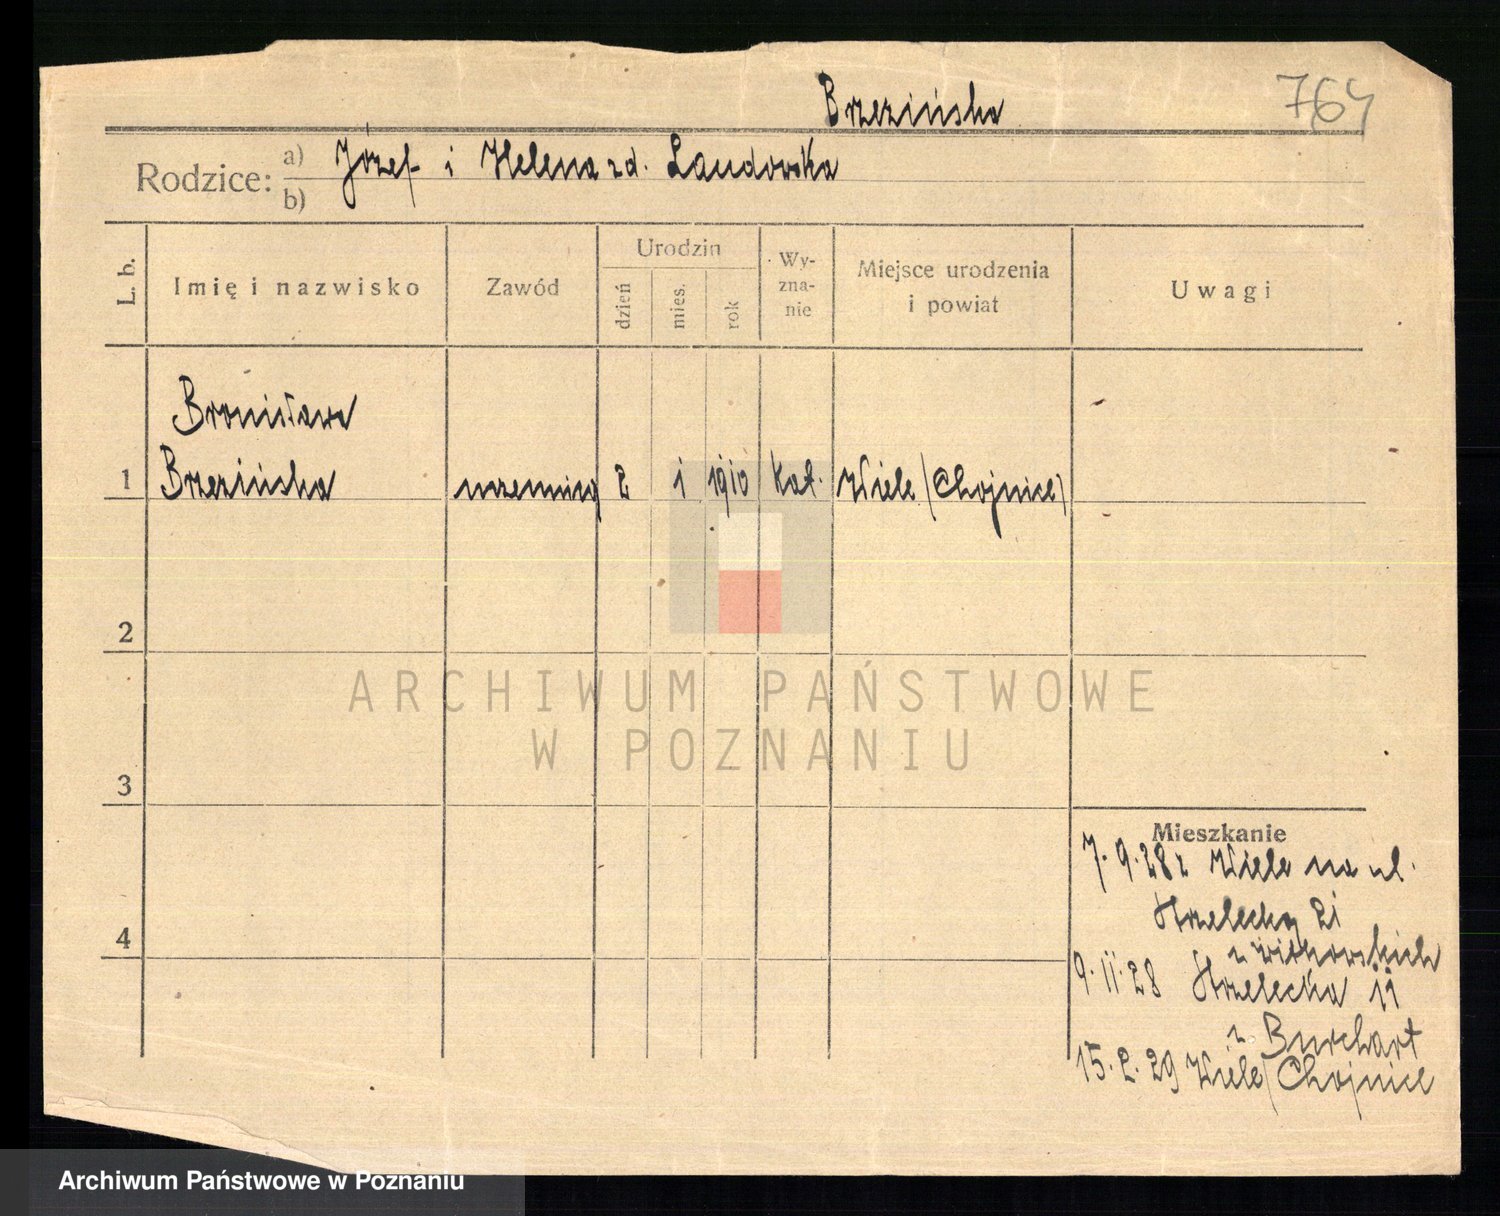 Brzezińska
764
Rodzice: a) Józef i Helena zd. Landowska
b)
L. b.
Imię i nazwisko
Zawód
Urodzin
dzień
mies.
rok
Wy-
zna-
nie
Miejsce urodzenia
i powiat
Uwagi
Bronisława
1 Brzezińska uczennica 2 1 1910 kat. Wiele (Chojnice)
2
3
4
ARCHIWUM PAŃSTWOWE
W POZNANIU
Mieszkanie
7.9.28 z Wiele na ul.
Strzelecką 21
u Witkowskich
9.11.28 Strzelecka 11
u Burchart
15.2.29 Wiele/Chojnice
Archiwum Państwowe w Poznaniu